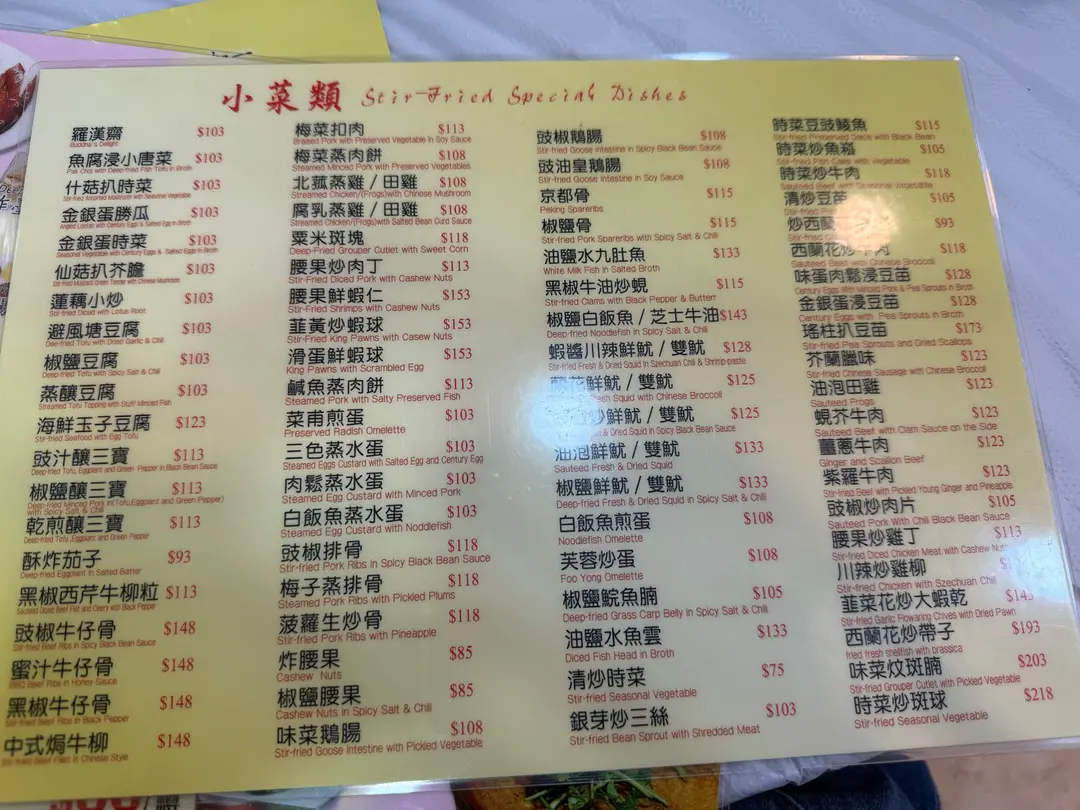 小菜類 Stir-Fried Special Dishes
羅漢齋 $103
Buddha's Delight
魚腐浸小唐菜 $103
Pak Choi with Deep-fried Fish Tofu in Broth
什菇扒時菜 $103
Stir-fried Assorted Mushroom with Seasonal Vegetable
金銀蛋勝瓜 $103
Angled Loofah with Century Eggs & Salted Egg in Broth
金銀蛋時菜 $103
Seasonal Vegetable with Century Eggs & Salted Eggs in Broth
仙菇扒芥膽 $103
Stir-fried Mustard Green Tender with Chinese Mushroom
蓮藕小炒 $103
Stir-fried Diced with Lotus Root
避風塘豆腐 $103
Dee-fried Tofu with Dried Garlic & Chili
椒鹽豆腐 $103
Deep-fried Tofu with Spicy Salt & Chili
蒸釀豆腐 $103
Streamed Tofu Topping with Stuff Minced Fish
海鮮玉子豆腐 $123
Stir-fried Seafood with Egg Tofu
豉汁釀三寶 $113
Deep-fried Tofu, Eggplant and Green Pepper in Black Bean Sauce
椒鹽釀三寶 $113
Deep-fried Minced Pork in(Tofu,Eggplant and Green Pepper)
with Spicy Salt & Chili
乾煎釀三寶 $113
Deep-fried Tofu ,Eggplant and Green Pepper
酥炸茄子 $93
Deep-fried Eggplant in Salted Batter
黑椒西芹牛柳粒 $113
Sauteed Diced Beef Filet and Celery with Black Pepper
豉椒牛仔骨 $148
Stir-fried Beef Ribs in Spicy Black Bean Sauce
蜜汁牛仔骨 $148
BBQ Beef Ribs in Honey Sauce
黑椒牛仔骨 $148
Stir-fried Beef Ribs in Black Pepper
中式焗牛柳 $148
Stir-fried Beef Filet in Chinese Style
梅菜扣肉 $113
Braised Pork with Preserved Vegetable in Soy Sauce
梅菜蒸肉餅 $108
Steamed Minced Pork with Preserved Vegetables
北菰蒸雞 / 田雞 $108
Streamed Chicken/(Frogs)with Chinese Mushroom
腐乳蒸雞 / 田雞 $108
Streamed Chicken/(Frogs)with Salted Bean Curd Sauce
粟米斑塊 $118
Deep-Fried Grouper Cutlet with Sweet Corn
腰果炒肉丁 $113
Stir-Fried Diced Pork with Cashew Nuts
腰果鮮蝦仁 $153
Stir-Fried Shrimps with Cashew Nuts
韮黃炒蝦球 $153
Stir-Fried King Pawns with Casew Nuts
滑蛋鮮蝦球 $153
King Pawns with Scrambled Egg
鹹魚蒸肉餅 $113
Steamed Pork with Salty Preserved Fish
菜甫煎蛋 $103
Preserved Radish Omelette
三色蒸水蛋 $103
Steamed Eggs Custard with Salted Egg and Century Egg
肉鬆蒸水蛋 $103
Steamed Egg Custard with Minced Pork
白飯魚蒸水蛋 $103
Steamed Egg Custard with Noddlefish
豉椒排骨 $118
Stir-fried Pork Ribs in Spicy Black Bean Sauce
梅子蒸排骨 $118
Steamed Pork Ribs with Pickled Plums
菠蘿生炒骨 $118
Stir-fried Pork Ribs with Pineapple
炸腰果 $85
Cashew Nuts
椒鹽腰果 $85
Cashew Nuts in Spicy Salt & Chili
味菜鵝腸 $108
Stir-fried Goose Intestine with Pickled Vegetable
豉椒鵝腸 $108
Stir-fried Goose Intestine in Spicy Black Bean Sauce
豉油皇鵝腸 $108
Stir-fried Goose Intestine in Soy Sauce
京都骨 $115
Peking Spareribs
椒鹽骨 $115
Stir-fried Pork Spareribs with Spicy Salt & Chili
油鹽水九肚魚 $133
White Milk Fish in Salted Broth
黑椒牛油炒蜆 $115
Stir-fried Clams with Black Pepper & Butterr
椒鹽白飯魚 / 芝士牛油 $143
Deep-fried Noodlefish in Spicy Salt & Chili
蝦醬川辣鮮魷 / 雙魷 $128
Stir-fried Fresh & Dried Squid in Szechuan Chili & Shrimp-paste
蘭花鮮魷 / 雙魷 $125
Fresh Squid with Chinese Broccoli
炒鮮魷 / 雙魷 $125
& Dried Squid in Spicy Black Bean Sauce
油泡鮮魷 / 雙魷 $133
Sauteed Fresh & Dried Squid
椒鹽鮮魷 / 雙魷 $133
Deep-fried Fresh & Dried Squid in Spicy Salt & Chili
白飯魚煎蛋 $108
Noodlefish Omelette
芙蓉炒蛋 $108
Foo Yong Omelette
椒鹽鯇魚腩 $105
Deep-fried Grass Carp Belly in Spicy Salt & Chili
油鹽水魚雲 $133
Diced Fish Head in Broth
清炒時菜 $75
Stir-fried Seasonal Vegetable
銀芽炒三絲 $103
Stir-fried Bean Sprout with Shredded Meat
時菜豆豉鯪魚 $115
Stir-fried Preserved Dace with Black Bean
時菜炒魚崧 $105
Stir-fried Fish Cake with Vegetable
時菜炒牛肉 $118
Sauteed Beef with Seasonal Vegetable
清炒豆苗 $105
Stir-fried
炒西蘭 $93
Stir-fried
西蘭花炒牛肉 $118
Sauteed Beef with Chinese Broccoli
味蛋肉鬆浸豆苗 $128
Century Eggs with Minced Pork & Pea Sprouts in Broth
金銀蛋浸豆苗 $128
Century Eggs with Pea Sprouts in Broth
瑤柱扒豆苗 $173
Stir-fried Pea Sprouts and Dried Scallops
芥蘭臘味 $123
Stir-fried Chinese Sausage with Chinese Broccoli
油泡田雞 $123
Sauteed Frogs
蜆芥牛肉 $123
Sauteed Beef with Clam Sauce on the Side
薑蔥牛肉 $123
Ginger and Scallion Beef
紫羅牛肉 $123
Stir-fried Beef with Pickled Young Ginger and Pineapple
豉椒炒肉片 $105
Sauteed Pork With Chili Black Bean Sauce
腰果炒雞丁 $113
Stir-fried Diced Chicken Meat with Cashew Nuts
川辣炒雞柳
Stir-fried Chicken with Szechuan Chili
韮菜花炒大蝦乾 $143
Stir-fried Garlic Flowering Chives with Dried Pawn
西蘭花炒帶子 $193
fried fresh shellfish with brassica
味菜炆斑腩 $203
Stir-fried Grouper Cutlet with Pickled Vegetable
時菜炒斑球 $218
Stir-fried Seasonal Vegetable